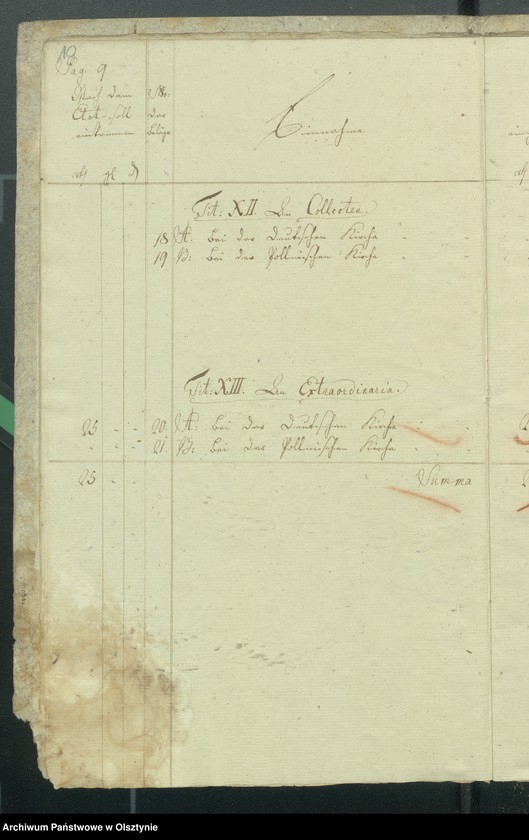 Pag. 9
Nach dem
Etat soll
einkommen
No:
der
Beläge
Einnahme
Tit: XII. An Collecten.
18 A. bei der Deutschen Kirche - -
19 B: bei der Pollnischen Kirche - -
Tit: XIII. An Extraordinaria.
25 - - 20 A: bei der Deutschen Kirche - -
- - - 21. B: bei der Pollnischen Kirche - -
25 - - Summa
Archiwum Państwowe w Olsztynie